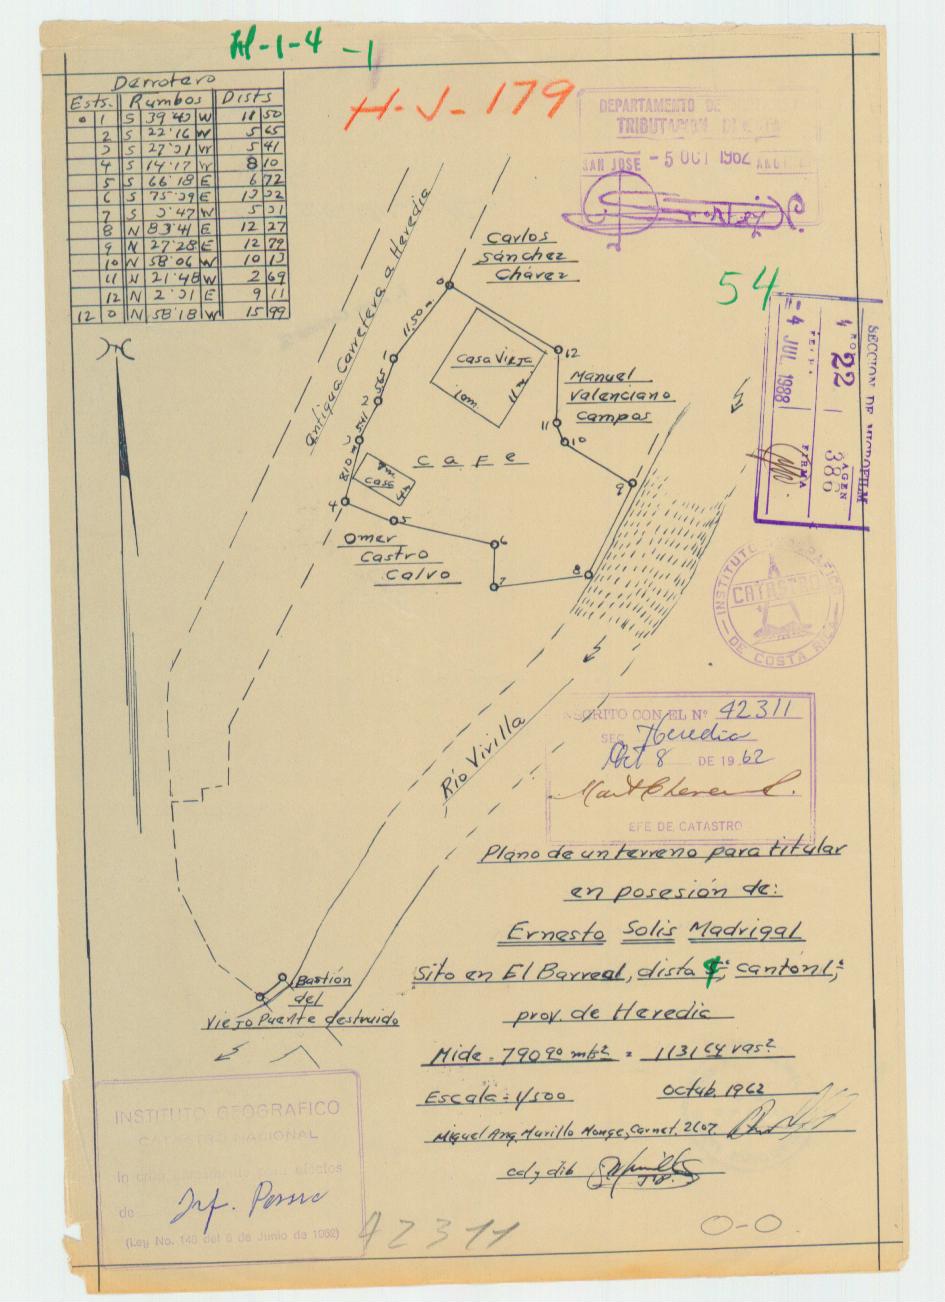 H-1-4-1
H-J-179
Derrotero
Ests. Rumbos Dists
0 1 S 39°43 W 11 50
2 S 22°16 W 5 65
3 S 27°31 W 5 41
4 S 14°17 W 8 10
5 S 66°18 E 6 72
6 S 75°39 E 13 32
7 S 3°47 W 5 31
8 N 83°41 E 12 27
9 N 27°28 E 12 79
10 N 58°06 W 10 13
11 N 21°48 W 2 69
12 N 2°31 E 9 11
12 0 N 58°18 W 15 99
DEPARTAMENTO DE
TRIBUTACION DIRECTA
SAN JOSE - 5 OCT 1962
54
SECCION DE MICROFILM
ROLLO
22
IMAGEN
386
FECHA
4 JUL 1988
FIRMA
antigua Carretera a Heredia
Carlos
Sánchez
Chávez
0
11.50 m
1
5.65
2
5.41
3
8.10 m
4
Casa Vieja
10m.
11 m
12
Manuel
Valenciano
Campos
11
10
9
cafe
casa
4
5
6
7
8
Omer
Castro
Calvo
INSTITUTO GEOGRAFICO
CATASTRO
DE COSTA RICA
INSCRITO CON EL Nº 42311
SEC Heredia
Oct 8 DE 19 62
JEFE DE CATASTRO
Río Virilla
Plano de un terreno para titular
en posesión de:
Ernesto Solis Madrigal
Sito en El Barreal, dist. cantón 1º
prov. de Heredia
Mide = 790 90 mts² = 1131 64 vas²
Escala = 1/500 octub. 1962
Miguel Ang. Murillo Monge, Carnet. 2607.
cal y dib
Bastión
del
Viejo Puente destruido
INSTITUTO GEOGRAFICO
CATASTRO NACIONAL
de
(Ley No. 146 del 6 de Junio de 1962)
42311
0-0